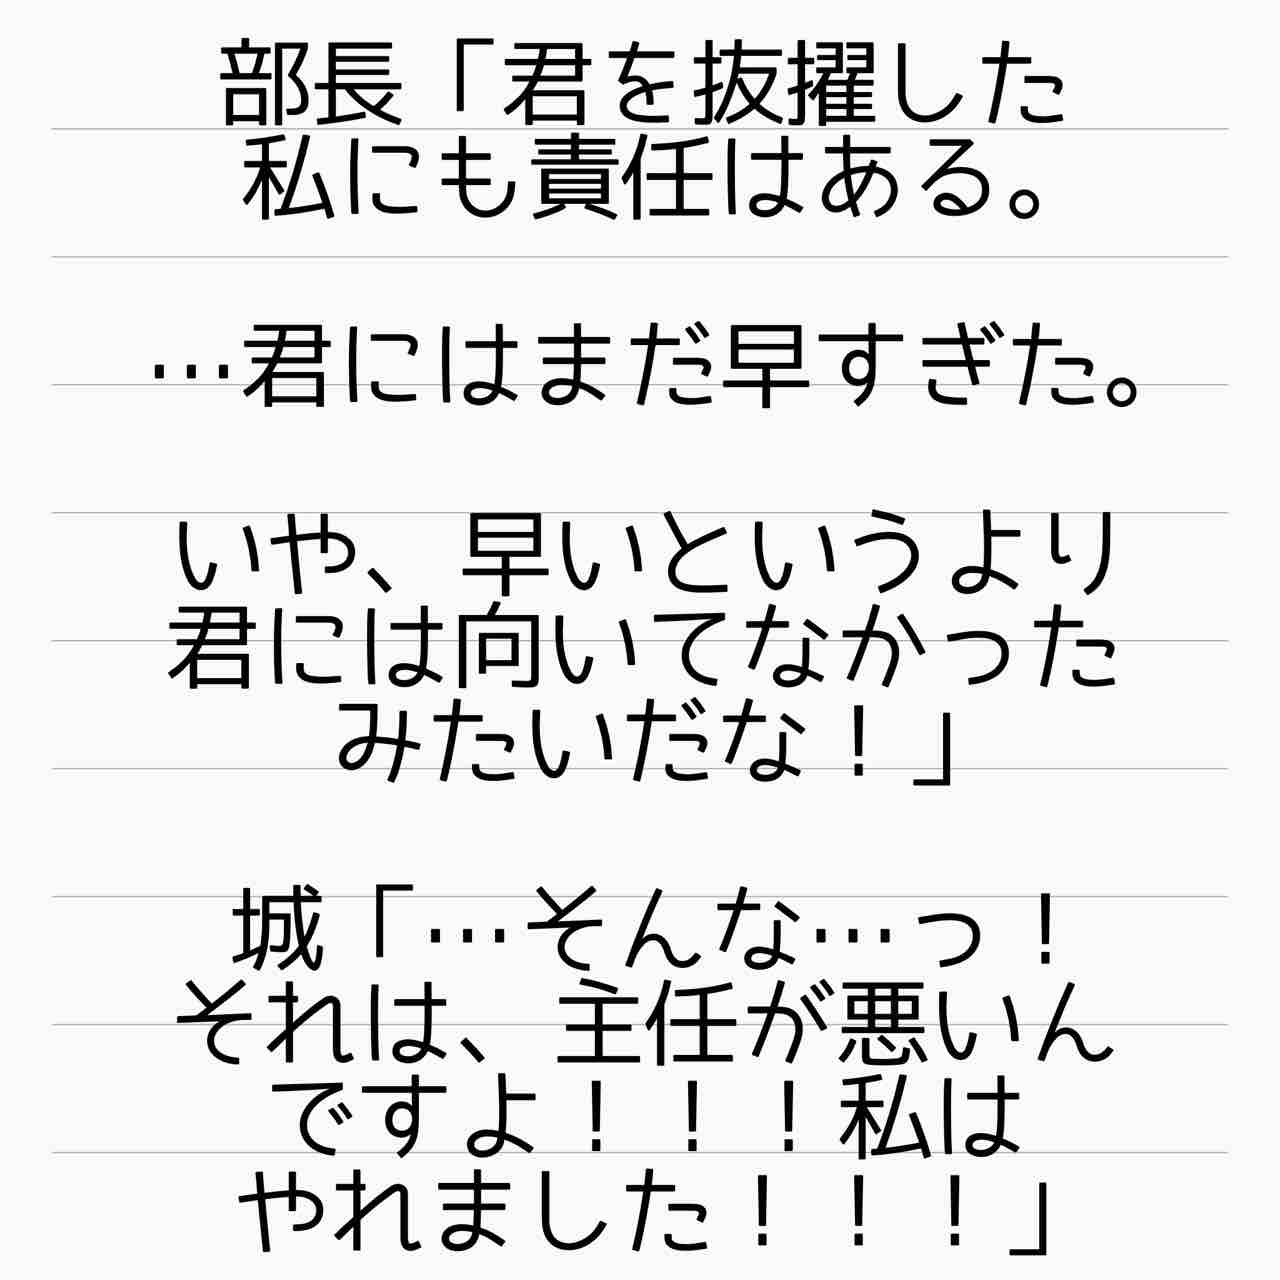 部長「君を抜擢した
私にも責任はある。
…君にはまだ早すぎた。
いや、早いというより
君には向いてなかった
みたいだな！」
城「…そんな…っ！
それは、主任が悪いん
ですよ！！！私は
やれました！！！」